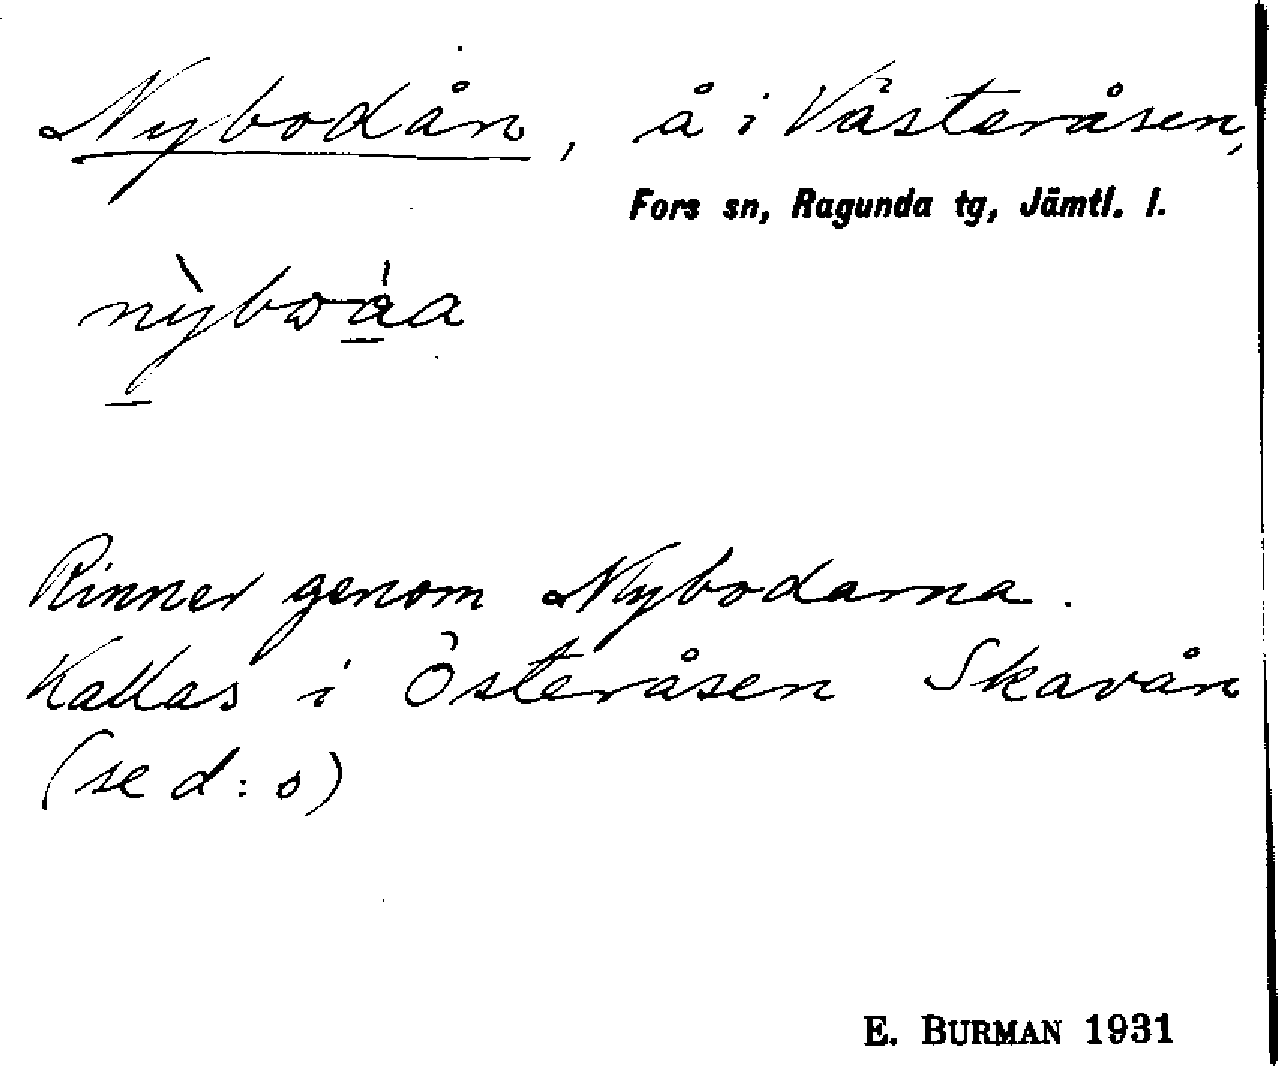 Nybodån, å i Västeråsen,
Fors sn, Ragunda tg, Jämtl. l.
nỳbωáa
Rinner genom Nybodarna.
Kallas i Österåsen Skavån
(se d:o)
E. BURMAN 1931